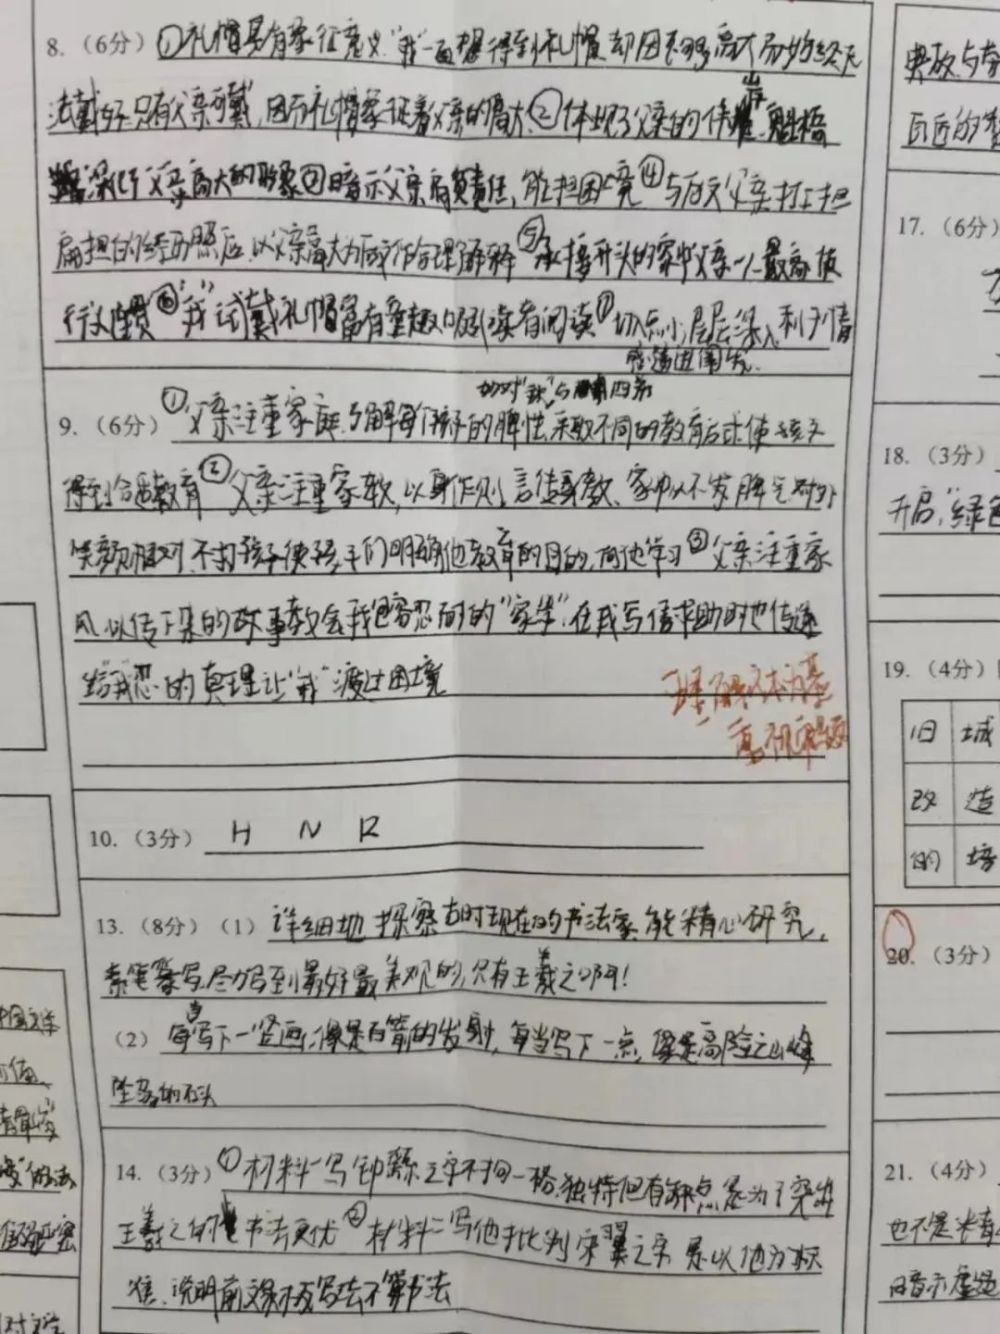 8.（6分）①礼帽具有象征意义."我"一直想得到礼帽,却因不够高大而始终无
法戴好.只有父亲可戴,因而礼帽象征着父亲的高大.②体现了父亲的伟岸、魁梧
深化了父亲高大的形象③暗示父亲肩负责任,能担困境④与后文父亲打上担
扁担的经历照应,以父亲高大为后文作合理解释⑤承接开头的家中父亲一人最高
行文连贯⑥"我"试戴礼帽富有童趣,吸引读者阅读⑦切入点小,层层深入利于情
感递进阐发.
如对"我"与四弟
9.（6分）①父亲注重家庭.了解每个孩子的脾性,采取不同的教育方式使孩子
得到合适教育②父亲注重家教,以身作则,言传身教、家中从不发脾气对外
笑颜相对.不打孩子使孩子们明确他教育的目的,向他学习③父亲注重家
风.以传下来的故事教会我包容忍耐的"家学",在我写信求助时也传递
给我"忍"的真理让"我"渡过困境
理解文本为基
10.（3分） H N R
13.（8分）（1）详细地探察古时现在的书法家,能精心研究,
尽力写到最好最美观的,只有王羲之啊!
（2）每当写下一竖画,像是百箭的发射,每当写下一点,像是高险之山峰
坠落的石头
14.（3分）①材料一写钟繇之字不同一格,独特但有缺点,是为了突出
王羲之的书法更优②材料二写他批判宋翼之字是以他为标
准,说明前文写法不算书法
典故与
17.（6分）
18.（3分）
开启"绿色
19.（4分）
旧 城
改 造
的 培
20.（3分）
21.（4分）
也不是没有